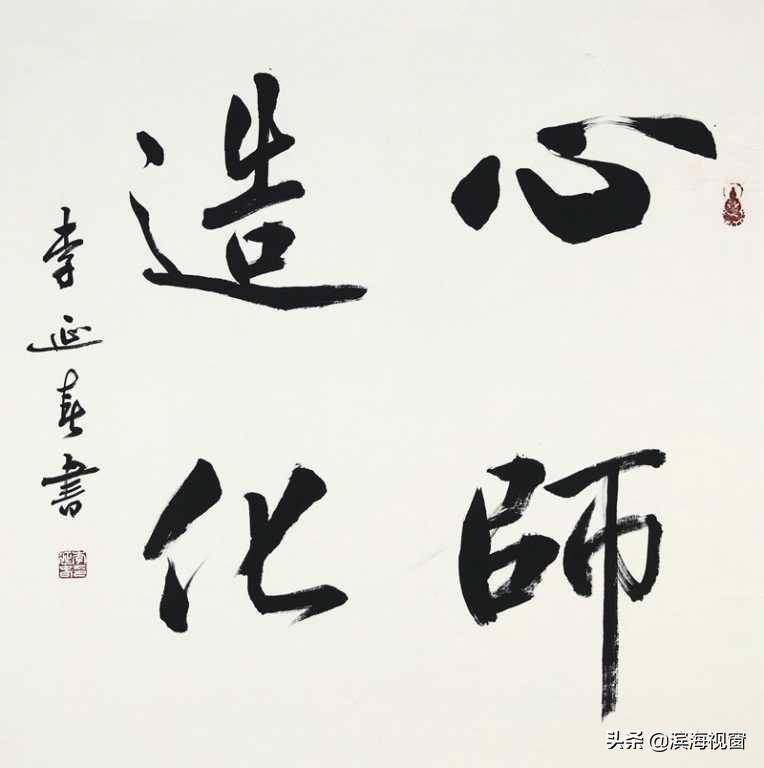 心師
造化
李延春書
头条 @滨海视窗